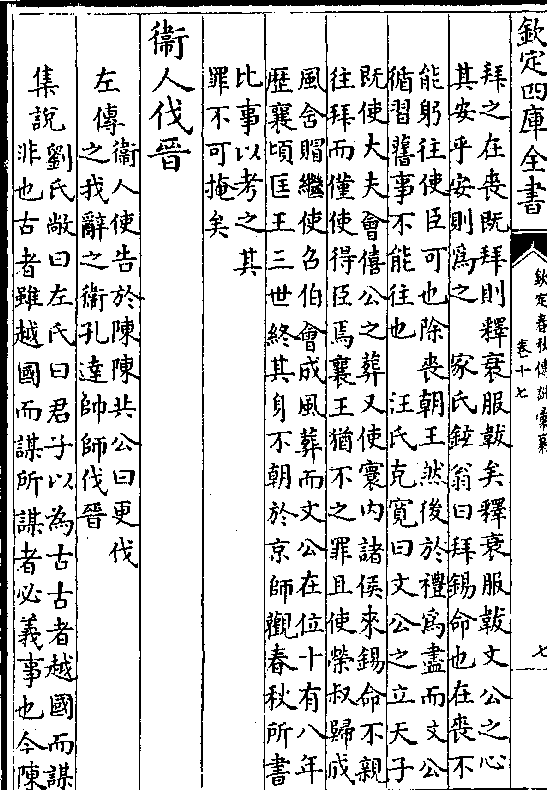 欽定四庫全書
欽定春秋傳說彙纂
卷十七
七
拜之在喪既拜則釋衰服韍矣釋衰服韍文公之心
其安乎安則爲之　家氏鉉翁曰拜錫命也在喪不
能躬往使臣可也除喪朝王然後於禮爲盡而文公
循習舊事不能往也　汪氏克寛曰文公之立天子
既使大夫會僖公之葬又使寰内諸侯來錫命不親
往拜而僅使得臣焉襄王猶不之罪且使榮叔歸成
風舍賵繼使召伯會成風葬而文公在位十有八年
歷襄頃匡王三世終其身不朝於京師觀春秋所書
比事以考之其
罪不可掩矣
衞人伐晉
左傳　衞人使告於陳陳共公曰更伐
之我辭之衞孔達帥師伐晉
集說　劉氏敞曰左氏曰君子以為古古者越國而謀
非也古者雖越國而謀所謀者必義事也今陳